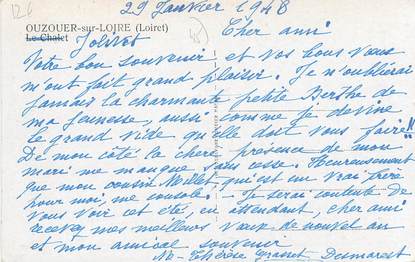 126
29 Janvier 1948
OUZOUER-sur-LOIRE (Loiret)
Le Chalet Jolivet
Cher ami
Votre bon souvenir et vos bons vœux
m'ont fait grand plaisir. Je n'oublierai
jamais la charmante petite Berthe de
ma jeunesse, aussi comme je devine
le grand vide qu'elle doit vous faire!!
De mon côté la chère présence de mon
mari me manque sans cesse. Heureusement
que mon cousin qu'est un vrai frère
pour moi, me console. - Je serai contente de
vous voir cet été, en attendant, cher ami
recevez mes meilleurs vœux de nouvel an
et mon amical souvenir
M- Thérèse Grasset Dumarest